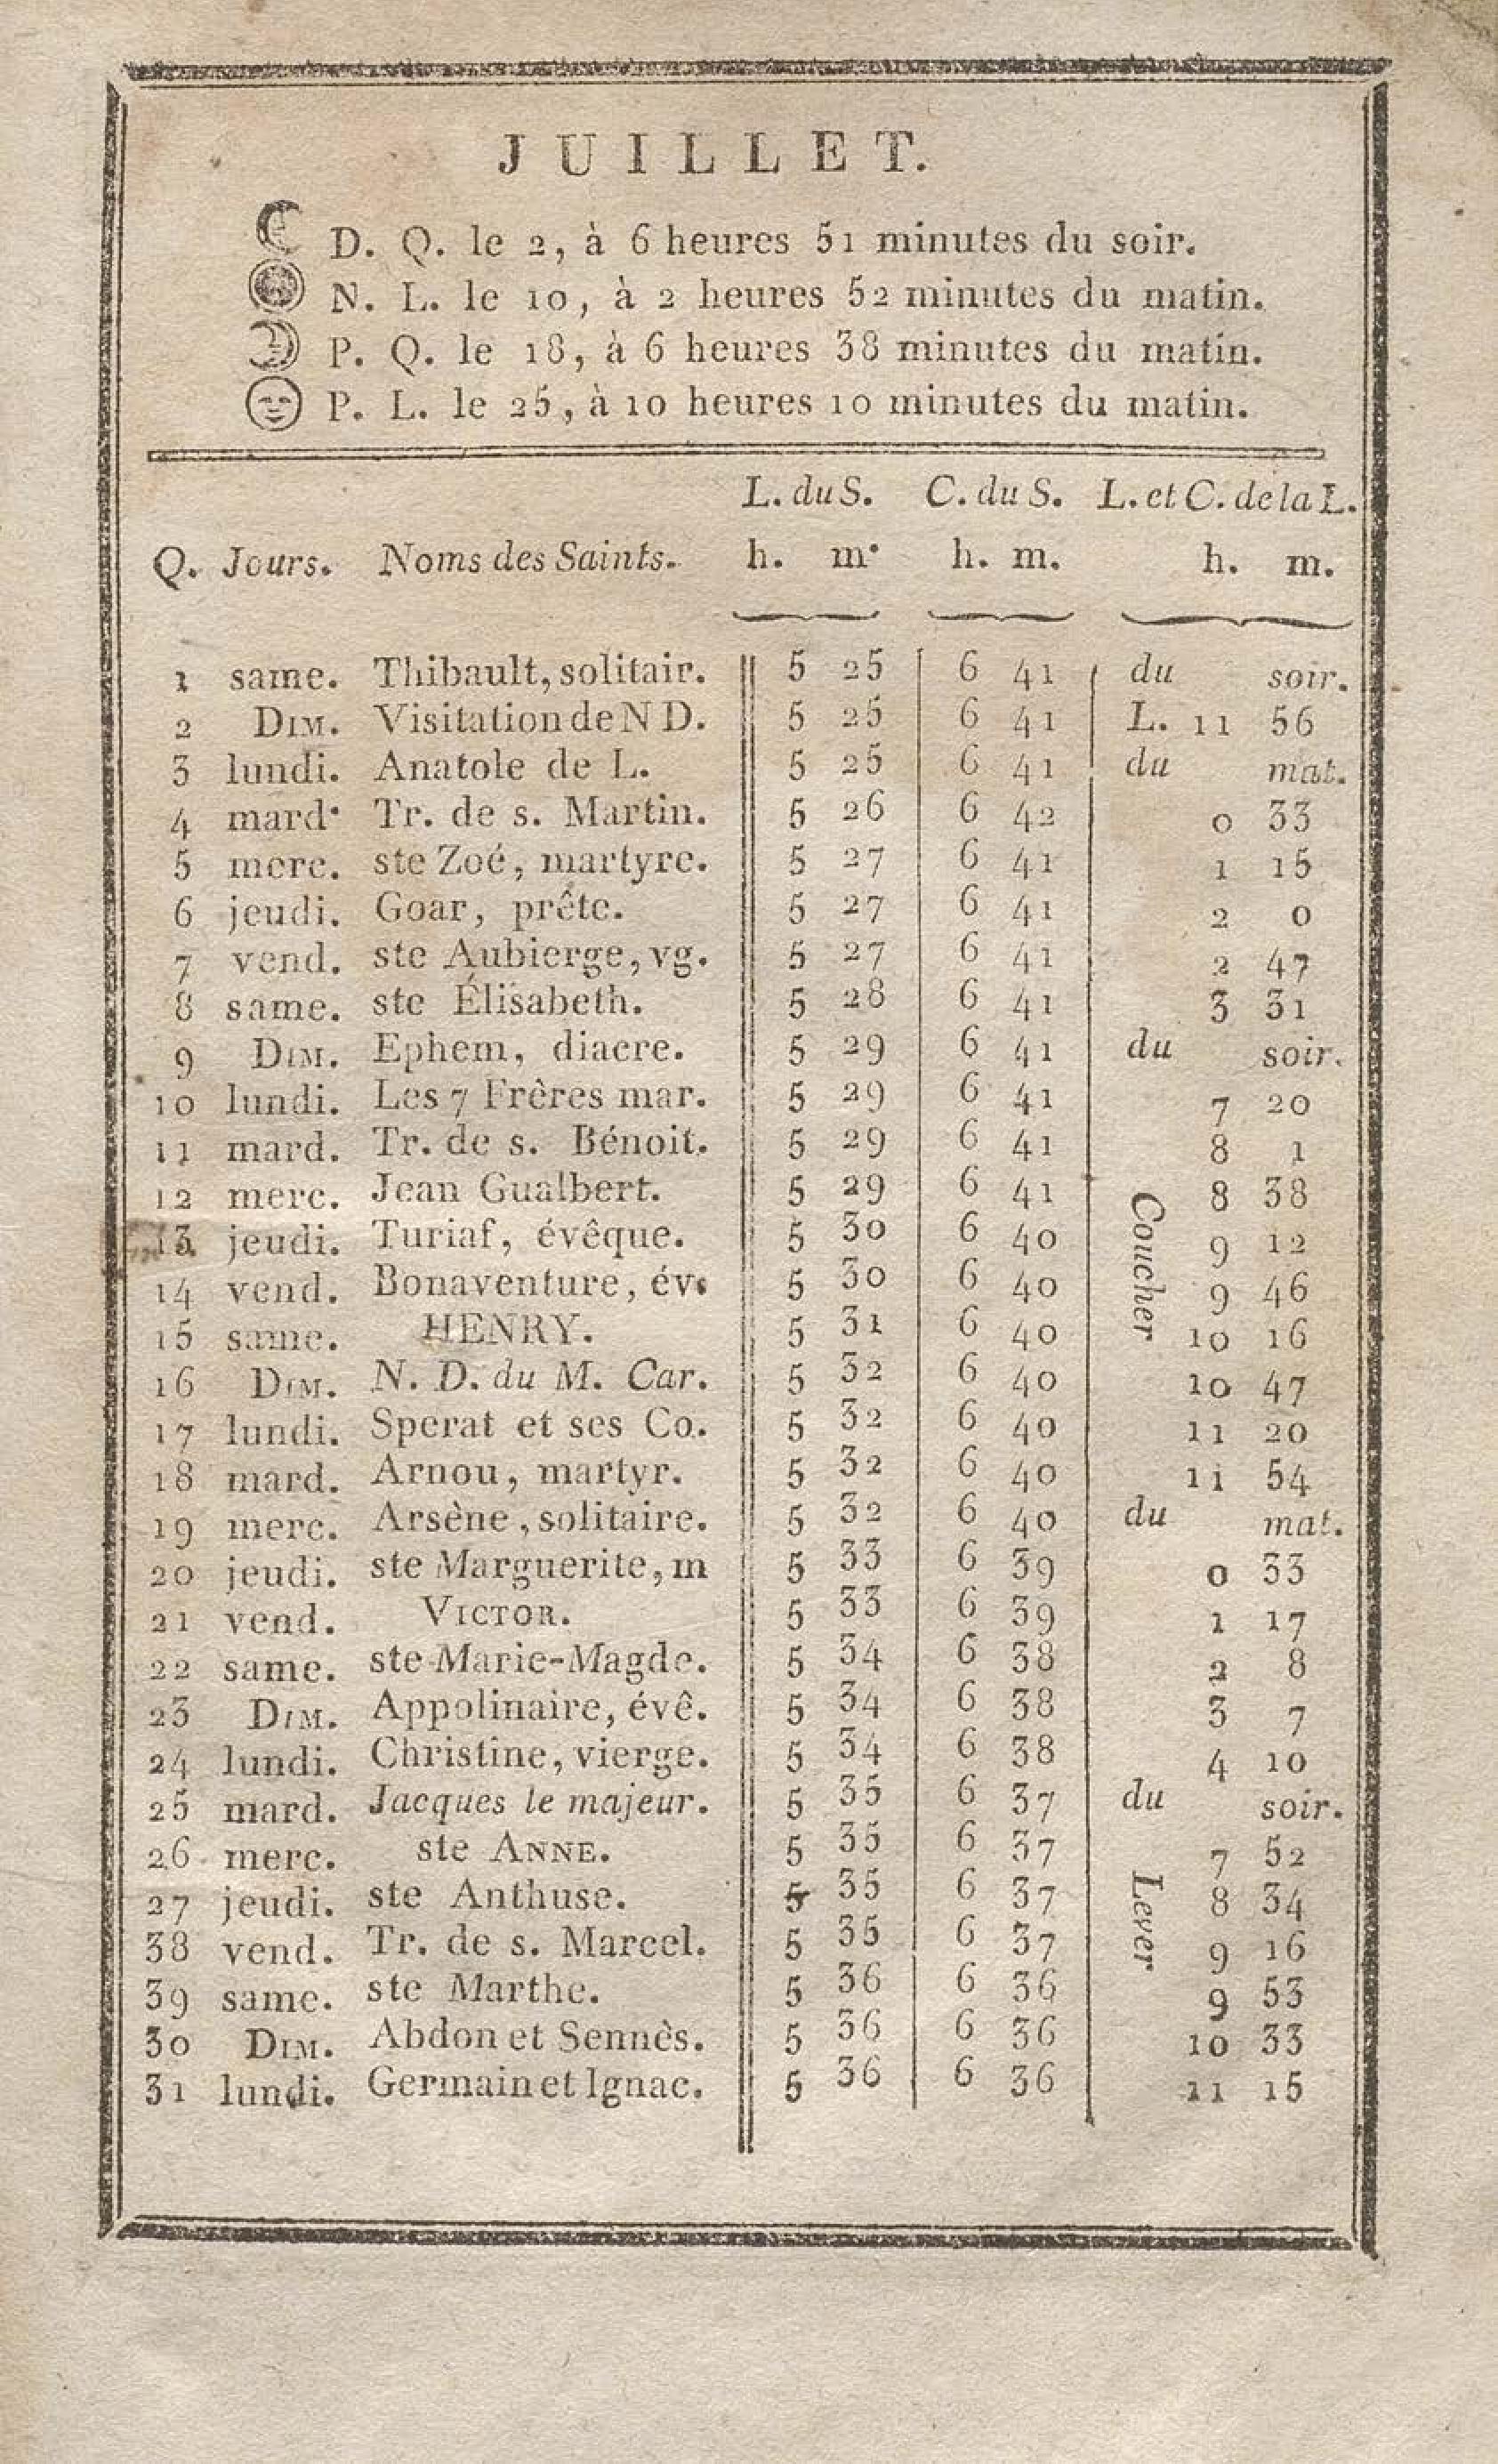 JUILLET.
D. Q. le 2, à 6 heures 51 minutes du soir.
N. L. le 10, à 2 heures 52 minutes du matin.
P. Q. le 18, à 6 heures 38 minutes du matin.
P. L. le 25, à 10 heures 10 minutes du matin.
L. du S. C. du S. L. et C. de la L.
Q. Jours. Noms des Saints. h. m. h. m. h. m.
1 same. Thibault, solitair. 5 25 6 41 du soir.
2 DIM. Visitation de N D. 5 25 6 41 L. 11 56
3 lundi. Anatole de L. 5 25 6 41 du mat.
4 mard. Tr. de s. Martin. 5 26 6 42 0 33
5 merc. ste Zoé, martyre. 5 27 6 41 1 15
6 jeudi. Goar, prête. 5 27 6 41 2 0
7 vend. ste Aubierge, vg. 5 27 6 41 2 47
8 same. ste Élisabeth. 5 28 6 41 3 31
9 DIM. Ephem, diacre. 5 29 6 41 du soir.
10 lundi. Les 7 Frères mar. 5 29 6 41 7 20
11 mard. Tr. de s. Bénoit. 5 29 6 41 8 1
12 merc. Jean Gualbert. 5 29 6 41 8 38
13 jeudi. Turiaf, évêque. 5 30 6 40 9 12
14 vend. Bonaventure, év. 5 30 6 40 9 46
15 same. HENRY. 5 31 6 40 10 16
Coucher
16 DIM. N. D. du M. Car. 5 32 6 40 10 47
17 lundi. Sperat et ses Co. 5 32 6 40 11 20
18 mard. Arnou, martyr. 5 32 6 40 11 54
19 merc. Arsène, solitaire. 5 32 6 40 du mat.
20 jeudi. ste Marguerite, m 5 33 6 39 0 33
21 vend. VICTOR. 5 33 6 39 1 17
22 same. ste Marie-Magde. 5 34 6 38 2 8
23 DIM. Appolinaire, évê. 5 34 6 38 3 7
24 lundi. Christine, vierge. 5 34 6 38 4 10
25 mard. Jacques le majeur. 5 35 6 37 du soir.
26 merc. ste ANNE. 5 35 6 37 7 52
27 jeudi. ste Anthuse. 5 35 6 37 8 34
38 vend. Tr. de s. Marcel. 5 35 6 37 9 16
Lever
39 same. ste Marthe. 5 36 6 36 9 53
30 DIM. Abdon et Sennès. 5 36 6 36 10 33
31 lundi. Germain et Ignac. 5 36 6 36 11 15